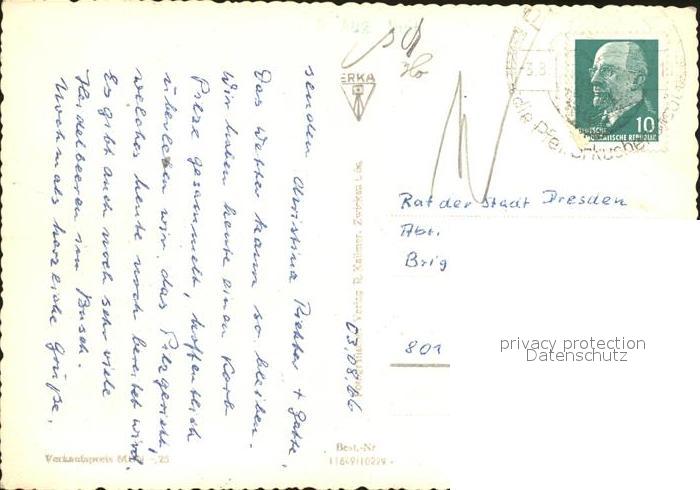 senden Christina Richter + Gatte.
Das Wetter kann so bleiben.
Wir haben heute einen Korb
Pilze gesammelt, hoffentlich
überleben wir das Pilzgericht,
welches heute noch bereitet wird.
Es gibt auch noch sehr viele
Heidelbeeren im Busch.
Nochmals herzliche Grüße.
03.08.66
ERKA
Verlag R. Kallmer, Zwickau i. Sa.
Verkaufspreis MDN -,25
Best.-Nr
11649110229
10
DEUTSCHE
DEMOKRATISCHE REPUBLIK
Rat der Stadt Dresden
Abt.
Brig
801
privacy protection
Datenschutz